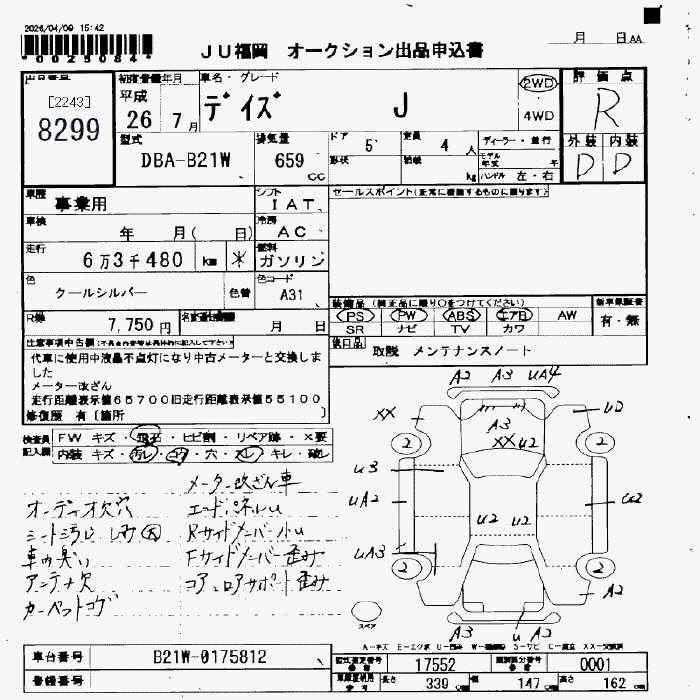 2026/04/09 15:42
*0025084*
JU福岡 オークション出品申込書
月 日 AA
出品番号
[2243]
8299
初度登録年月
平成
26 7月
車名・グレード
デイズ J
2WD
4WD
評価点
R
外装 内装
D D
型式
DBA-B21W
排気量
659
cc
ドア
5
形状
定員
4人
積載
kg
ディーラー・並行
モデル年度 年
ハンドル 左・右
車歴
事業用
シフト
IAT
セールスポイント(正常に機能するものに限ります)
車検
年 月( 日)
冷房
AC
走行
6万3千480 km *
燃料
ガソリン
色
クールシルバー
色替
色コード
A31
装備品 (純正品に限り○をつけてください)
PS PW ABS エアB AW
SR ナビ TV カワ
新車保証書
有・無
R券
7,750円
名変通知期限
月 日
後日品
取説 メンテナンスノート
注意事項申告欄
代車に使用中液晶不点灯になり中古メーターと交換しま
した
メーター改ざん
走行距離表示値65700旧走行距離表示値55100
修復歴 有〔箇所 〕
検査員記入欄
FW キズ・飛石・ヒビ割・リペア跡・×要
内装 キズ・汚れ・コゲ・穴・スレ・キレ・破レ
メーター改ざん車
オーディオ欠穴
エンドパネルu
シート汚れ しみ 大
Rサイドメンバー小u
車内臭い
Fサイドメンバー歪み
アンテナ欠
コアロアサポート歪み
カーペットコゲ
A2 A3 UA4
XX
U2
A3
XX U2
2 2
U3
UA2
U2 U2
U2
UA3
2 2
A2
A3 U A2
スペア
A-キズ E-エクボ U-凹み W-補修跡 S-サビ C-腐食 XX-交換済
車台番号
B21W-0175812
登録番号
型式指定番号
17552
類別区分番号
0001
長さ
339 cm
幅
147 cm
高さ
162 cm